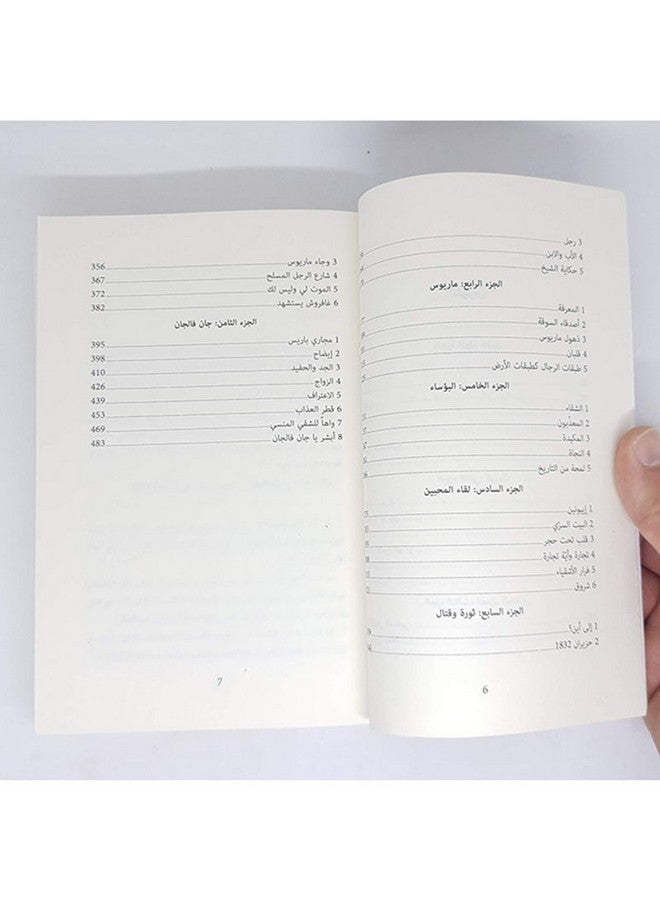 3 رجل
4 الأب والابن
5 حكاية الشيخ
الجزء الرابع: ماريوس
1 المعرفة
2 أصدقاء السوقة
3 ذهول ماريوس
4 قلبان
5 طبقات الرجال كطبقات الأرض
الجزء الخامس: البؤساء
1 الشقاء
2 المعذّبون
3 المكيدة
4 النجاة
5 لمحة من التاريخ
الجزء السادس: لقاء المحبين
1 إيبونين
2 البيت السرّي
3 قلب تحت حجر
4 تجارة وأيّة تجارة
5 فرار الأشقياء
6 شروق
الجزء السابع: ثورة وقتال
1 إلى أين؟
2 حزيران 1832
6
3 وجاء ماريوس 356
4 شارع الرجل المسلح 367
5 الموت لي وليس لك 372
6 غافروش يستشهد 382
الجزء الثامن: جان فالجان
1 مجاري باريس 395
2 إيضاح 398
3 الجد والحفيد 410
4 الزواج 426
5 الاعتراف 439
6 قطر العذاب 453
7 واهاً للشقي المنسي 469
8 أبشر يا جان فالجان 483
7